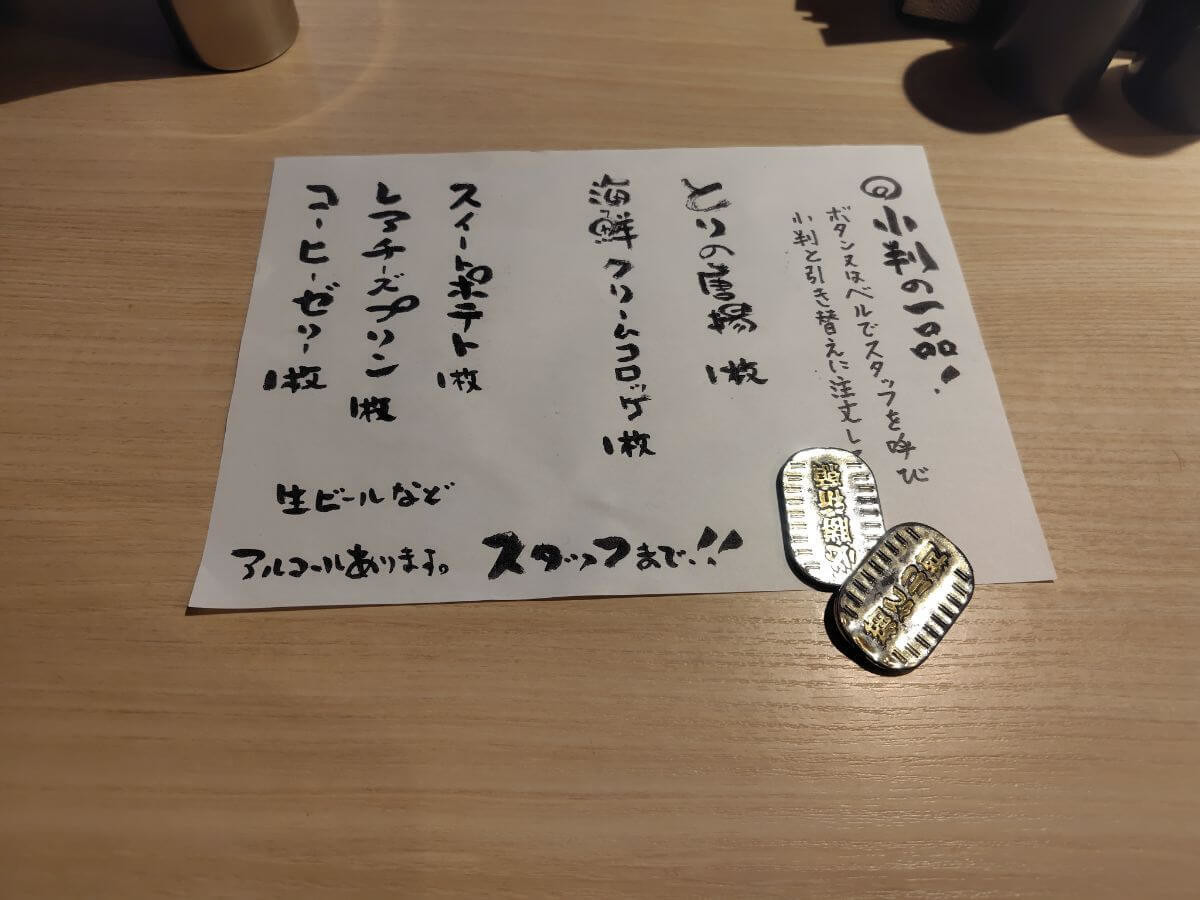 小判の一品!
ボタン又はベルでスタッフを呼び
小判と引き替えに注文し
とりの唐揚 1枚
海鮮クリームコロッケ 1枚
スイートポテト 1枚
レアチーズプリン 1枚
コーヒーゼリー 1枚
生ビールなど
アルコールあります。スタッフまで!!